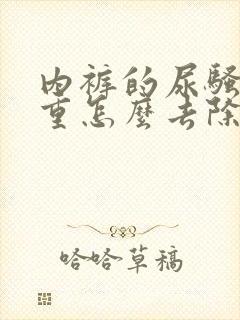 内裤的尿骚
重怎麽去除
哈哈草稿